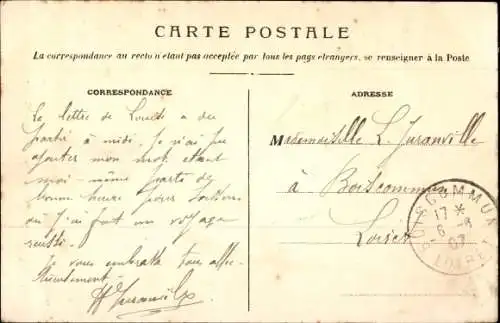 CARTE POSTALE
La correspondance au recto n'étant pas acceptée par tous les pays étrangers, se renseigner à la Poste
CORRESPONDANCE
La lettre de a du
partir à midi. Je n'ai pu
ajouter mon mot étant
moi-même partie de
bonne heure pour
où j'ai fait un voyage
réussi.
Je vous embrasse tous affec-
tueusement
Juranville
ADRESSE
Mademoiselle L. Juranville
à Boiscommun
Loiret
BOISCOMMUN
17 *
6 -8
07
LOIRET